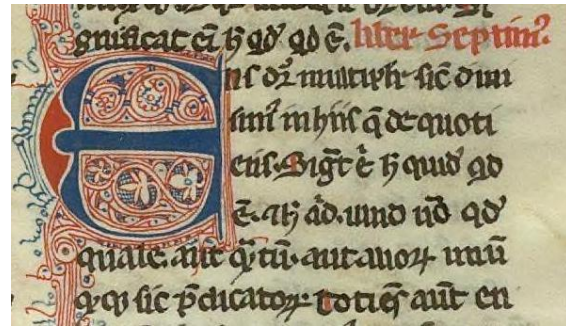 gnificat eī h qđ qđ ē. liber Septimꝰ
Ens dr̄ multiplr̄ sic̄ diui
simꝰ in hiis q̄ de quoti
ens. Sigt̄ ē h quid qđ
ē. ꝛ h ad. uº qđ
quale. aut qͣtū. aut alioꝝ unū
qͦqꝫ sic p̄dicatoꝝ. totiēs aūt en